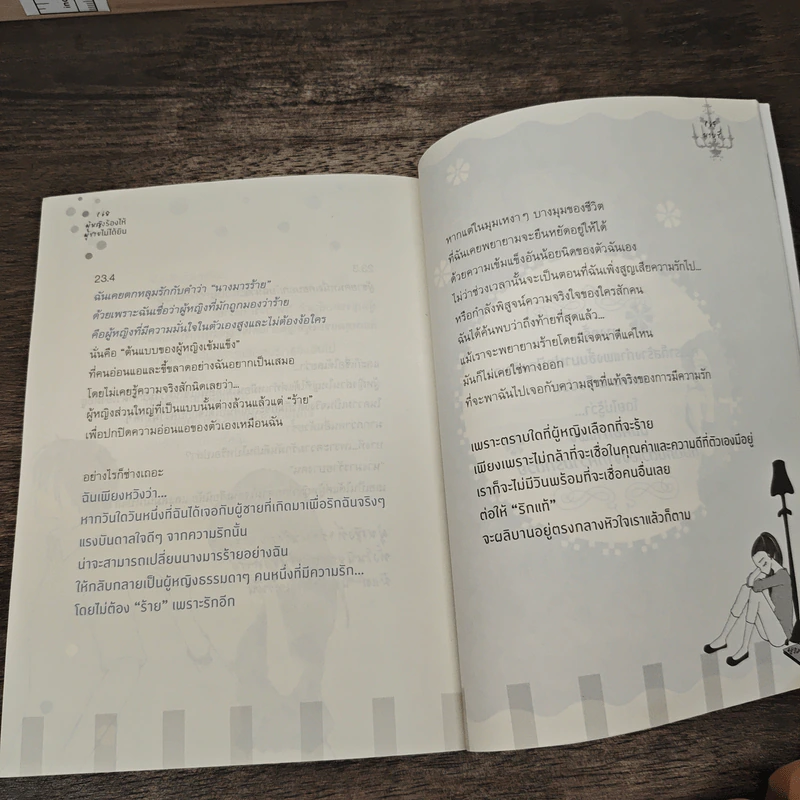 ผู้หญิงร้องไห้
ผู้ชายไม่ได้ยิน
23.4
ฉันเคยตกหลุมรักกับคำว่า “นางมารร้าย”
ด้วยเพราะฉันเชื่อว่าผู้หญิงที่มักถูกมองว่าร้าย
คือผู้หญิงที่มีความมั่นใจในตัวเองสูงและไม่ต้องง้อใคร
นั่นคือ “ต้นแบบของผู้หญิงเข้มแข็ง”
ที่คนอ่อนแอและขี้ขลาดอย่างฉันอยากเป็นเสมอ
โดยไม่เคยรู้ความจริงสักนิดเลยว่า...
ผู้หญิงส่วนใหญ่ที่เป็นแบบนั้นต่างล้วนแล้วแต่ “ร้าย”
เพื่อปกปิดความอ่อนแอของตัวเองเหมือนฉัน
อย่างไรก็ช่างเถอะ
ฉันเพียงหวังว่า...
หากวันใดวันหนึ่งที่ฉันได้เจอกับผู้ชายที่เกิดมาเพื่อรักฉันจริงๆ
แรงบันดาลใจดีๆ จากความรักนั้น
น่าจะสามารถเปลี่ยนนางมารร้ายอย่างฉัน
ให้กลับกลายเป็นผู้หญิงธรรมดาๆ คนหนึ่งที่มีความรัก...
โดยไม่ต้อง “ร้าย” เพราะรักอีก
หากแต่ในมุมเหงาๆ บางมุมของชีวิต
ที่ฉันเคยพยายามจะยืนหยัดอยู่ให้ได้
ด้วยความเข้มแข็งอันน้อยนิดของตัวฉันเอง
ไม่ว่าช่วงเวลานั้นจะเป็นตอนที่ฉันเพิ่งสูญเสียความรักไป...
หรือกำลังพิสูจน์ความจริงใจของใครสักคน
ฉันได้ค้นพบว่าถึงท้ายที่สุดแล้ว...
แม้เราจะพยายามร้ายโดยมีเจตนาดีแค่ไหน
มันก็ไม่เคยใช่ทางออก
ที่จะพาฉันไปเจอกับความสุขที่แท้จริงของการมีความรัก
เพราะตราบใดที่ผู้หญิงเลือกที่จะร้าย
เพียงเพราะไม่กล้าที่จะเชื่อในคุณค่าและความดีที่ตัวเองมีอยู่
เราก็จะไม่มีวันพร้อมที่จะเชื่อคนอื่นเลย
ต่อให้ “รักแท้”
จะผลิบานอยู่ตรงกลางหัวใจเราแล้วก็ตาม